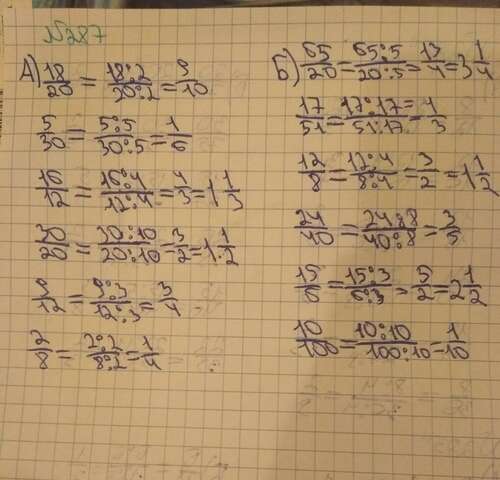 №287
А) 18/20 = 18:2/20:2 = 9/10
5/30 = 5:5/30:5 = 1/6
16/12 = 16:4/12:4 = 4/3 = 1 1/3
30/20 = 30:10/20:10 = 3/2 = 1 1/2
9/12 = 9:3/12:3 = 3/4
2/8 = 2:2/8:2 = 1/4
Б) 65/20 = 65:5/20:5 = 13/4 = 3 1/4
17/51 = 17:17/51:17 = 1/3
12/8 = 12:4/8:4 = 3/2 = 1 1/2
24/40 = 24:8/40:8 = 3/5
15/6 = 15:3/6:3 = 5/2 = 2 1/2
10/100 = 10:10/100:10 = 1/10